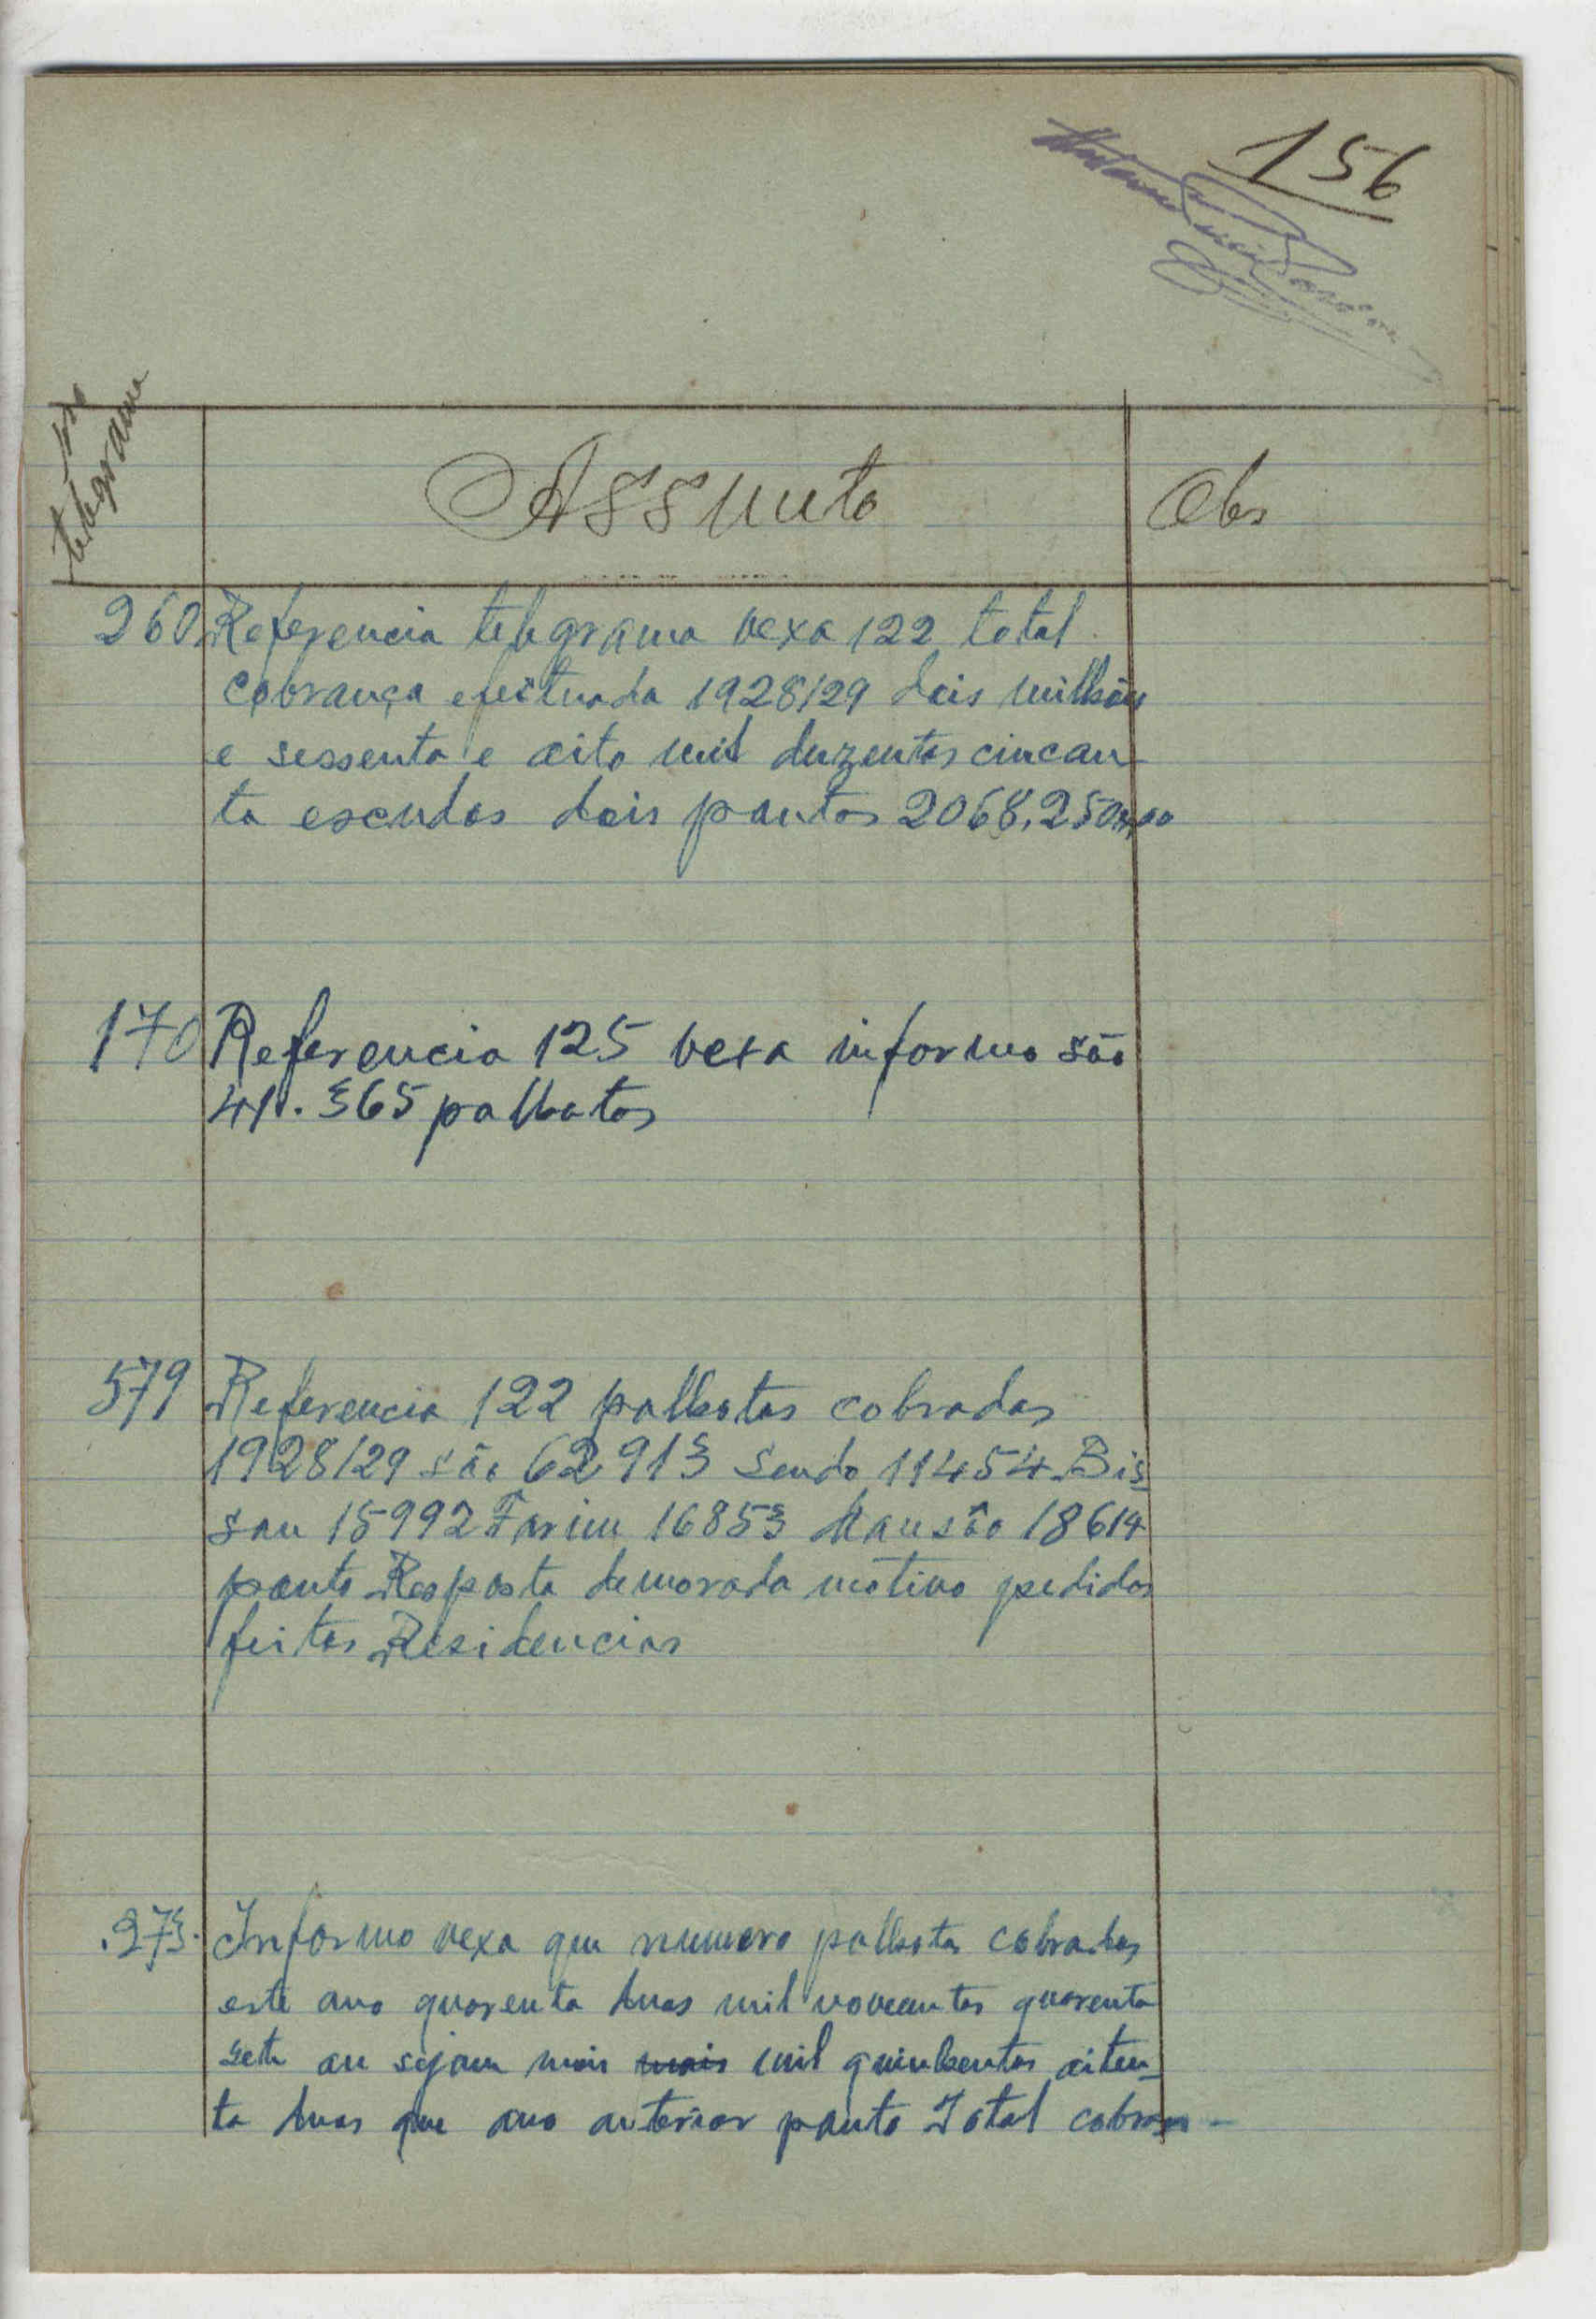 156
No telegrama
Assunto
Obs
260 Referencia telegrama vexa 122 total
cobrança efectuada 1928/29 dois milhões
e sessenta e oito mil duzentos cincoen
ta escudos dois pontos 2068.250$00
170 Referencia 125 vexa informo são
41.365 palhotas
579 Referencia 122 palhotas cobradas
1928/29 são 62913 sendo 11454 Bis
sau 15992 Farim 16853 Mansôa 18614
ponto Resposta demorada motivo pedidos
feitos Residencias
273. Informo vexa que numero palhotas cobradas
este ano quarenta duas mil novecentos quarenta
sete ou sejam mais mais mil quinhentos oiten-
ta duas que ano anterior ponto Total cobran-